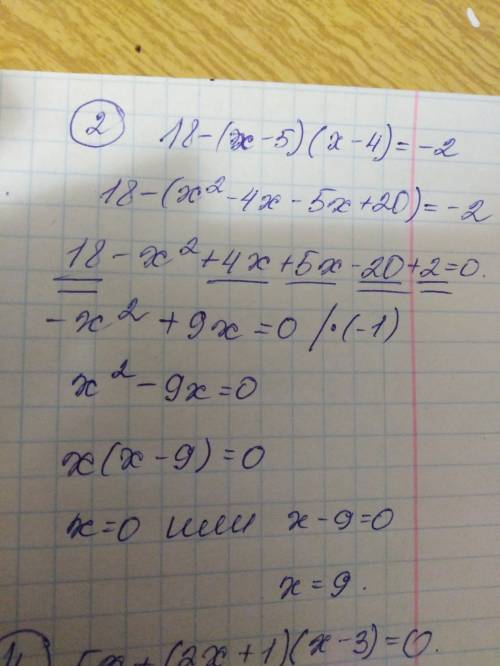 ② 18-(x-5)(x-4)=-2
18-(x²-4x-5x+20)=-2
18-x²+4x+5x-20+2=0.
-x²+9x=0 /·(-1)
x²-9x=0
x(x-9)=0
x=0 или x-9=0
x=9.
5x+(2x+1)(x-3)=0.